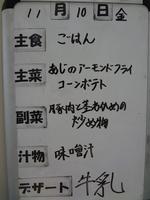 11月10日金
主食 ごはん
主菜 あじのアーモンドフライ
コーンポテト
副菜 豚肉と茎わかめの
炒め物
汁物 味噌汁
デザート 牛乳